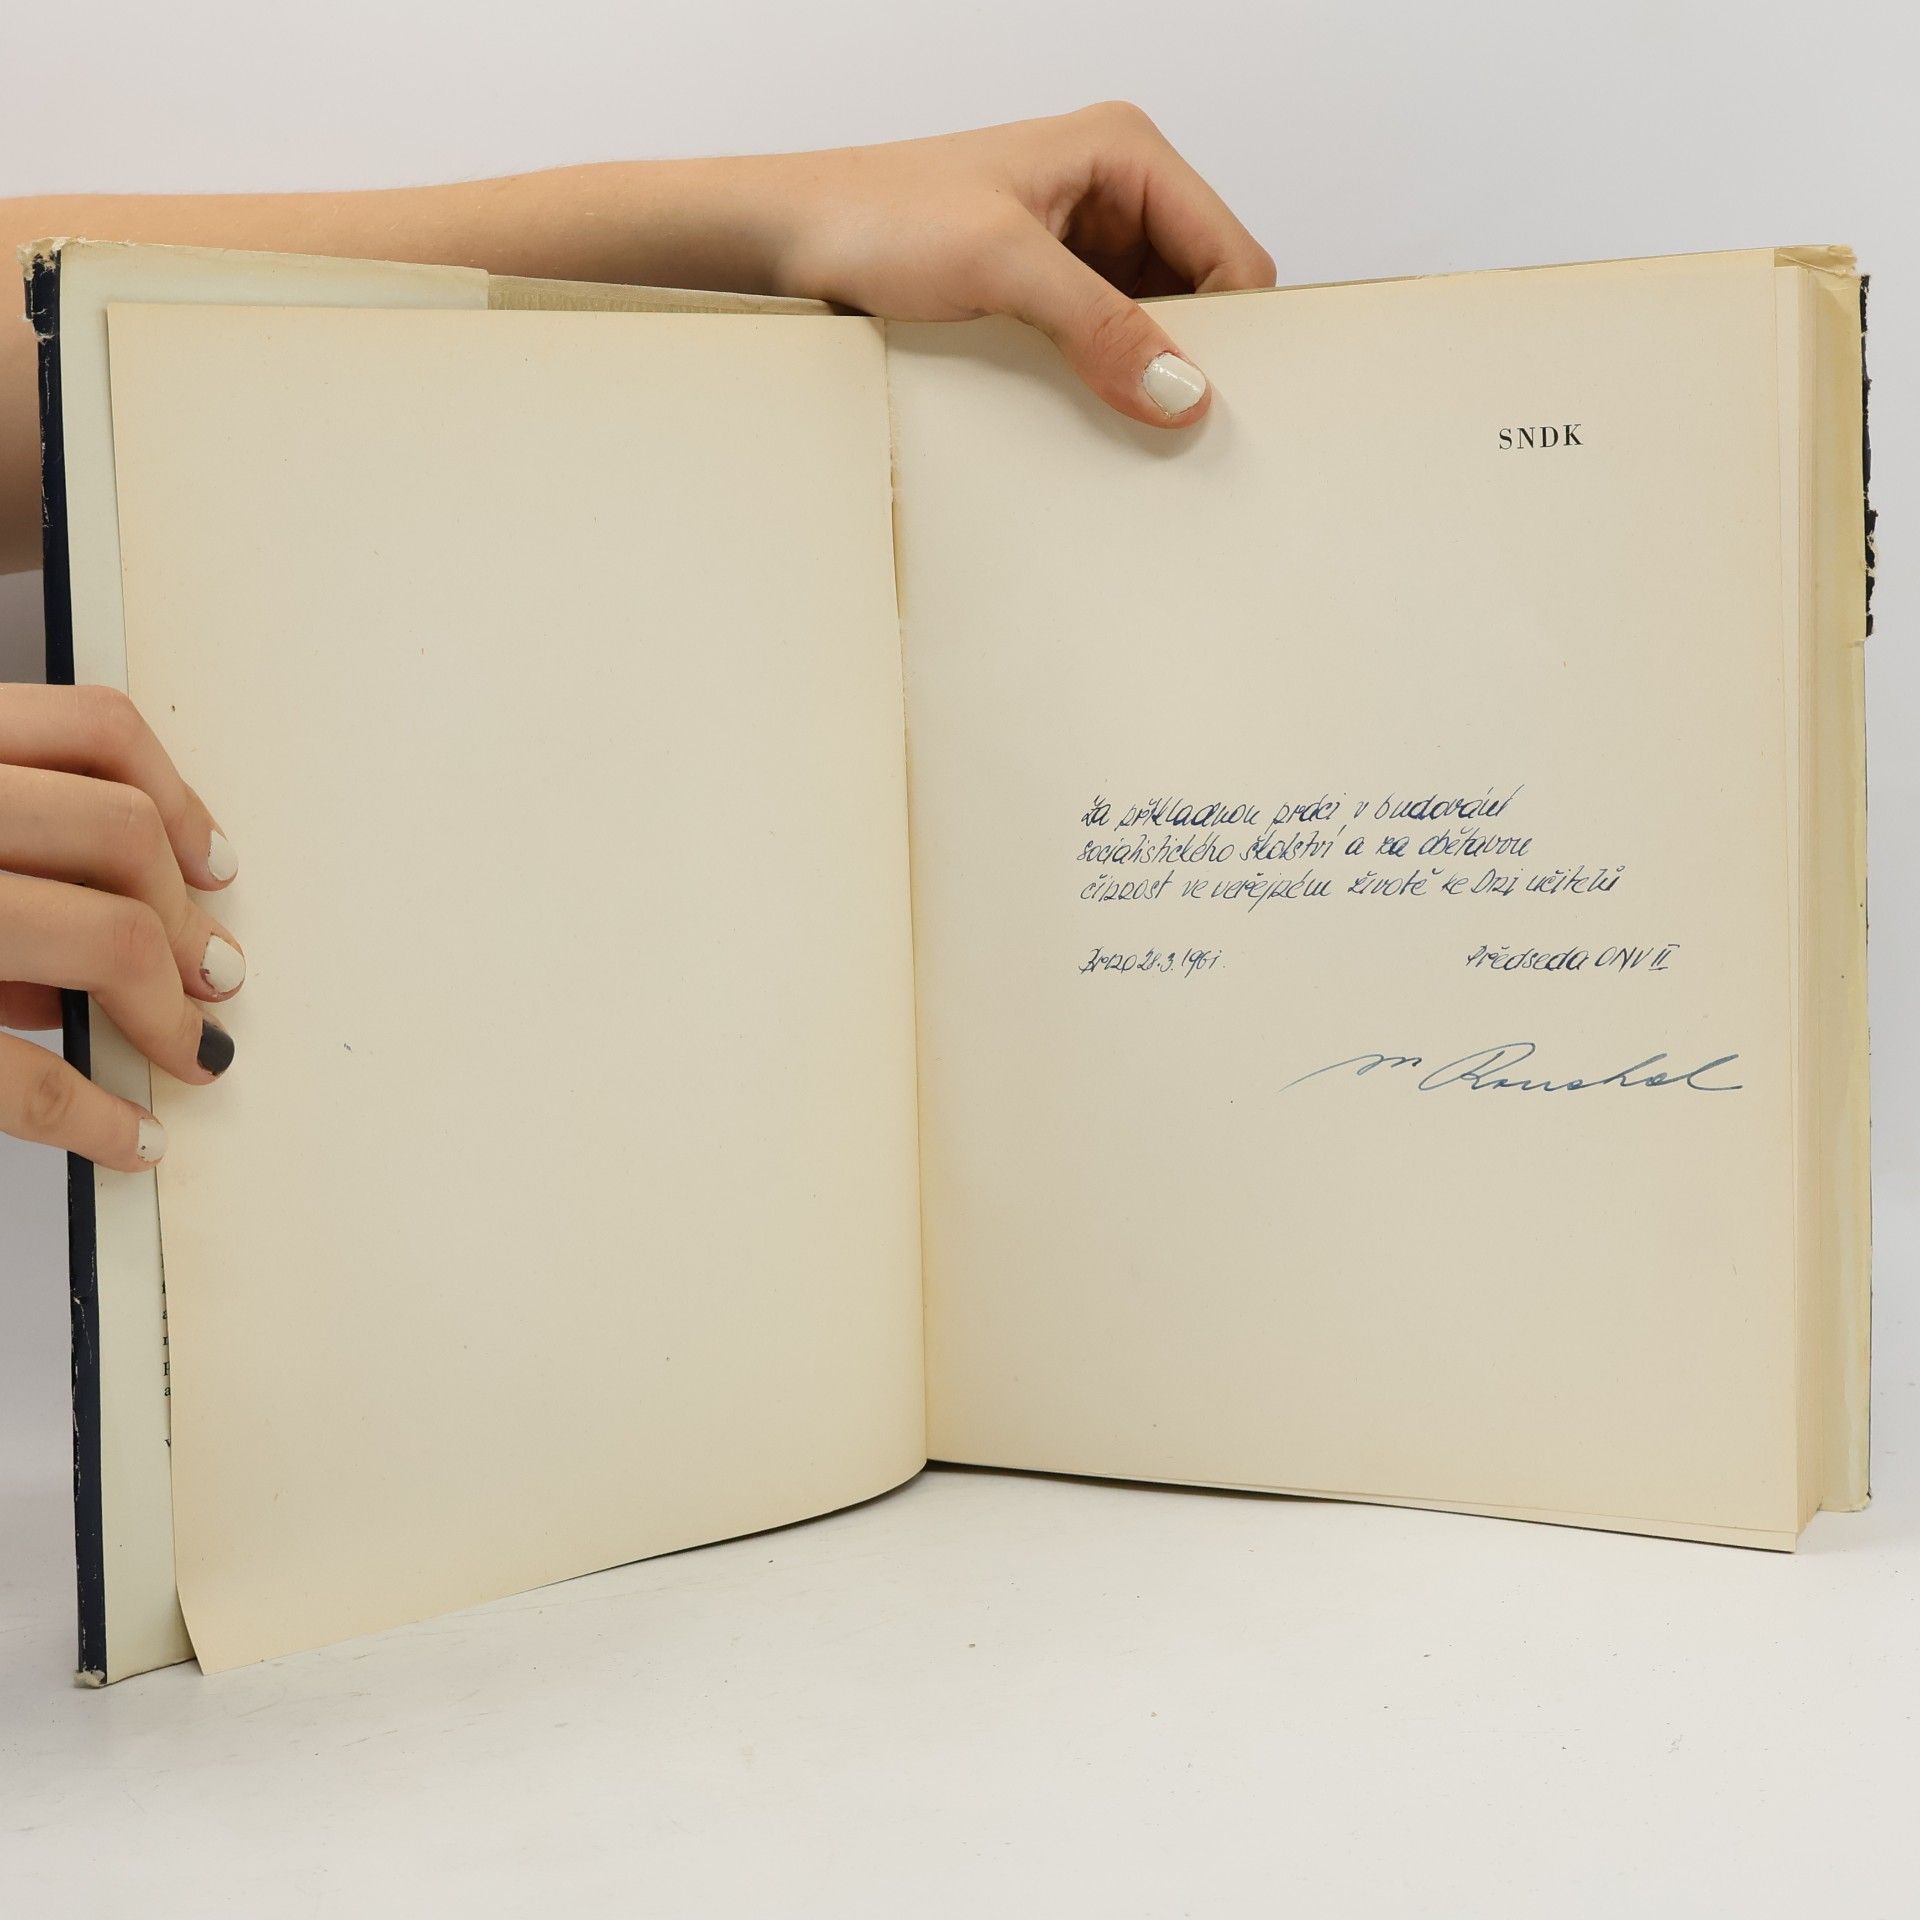 SNDK
Za příkladnou práci v budování
socialistického školství a za obětavou
činnost ve veřejném životě ke Dni učitelů
Brno 28.3.1961.
Předseda ONV II